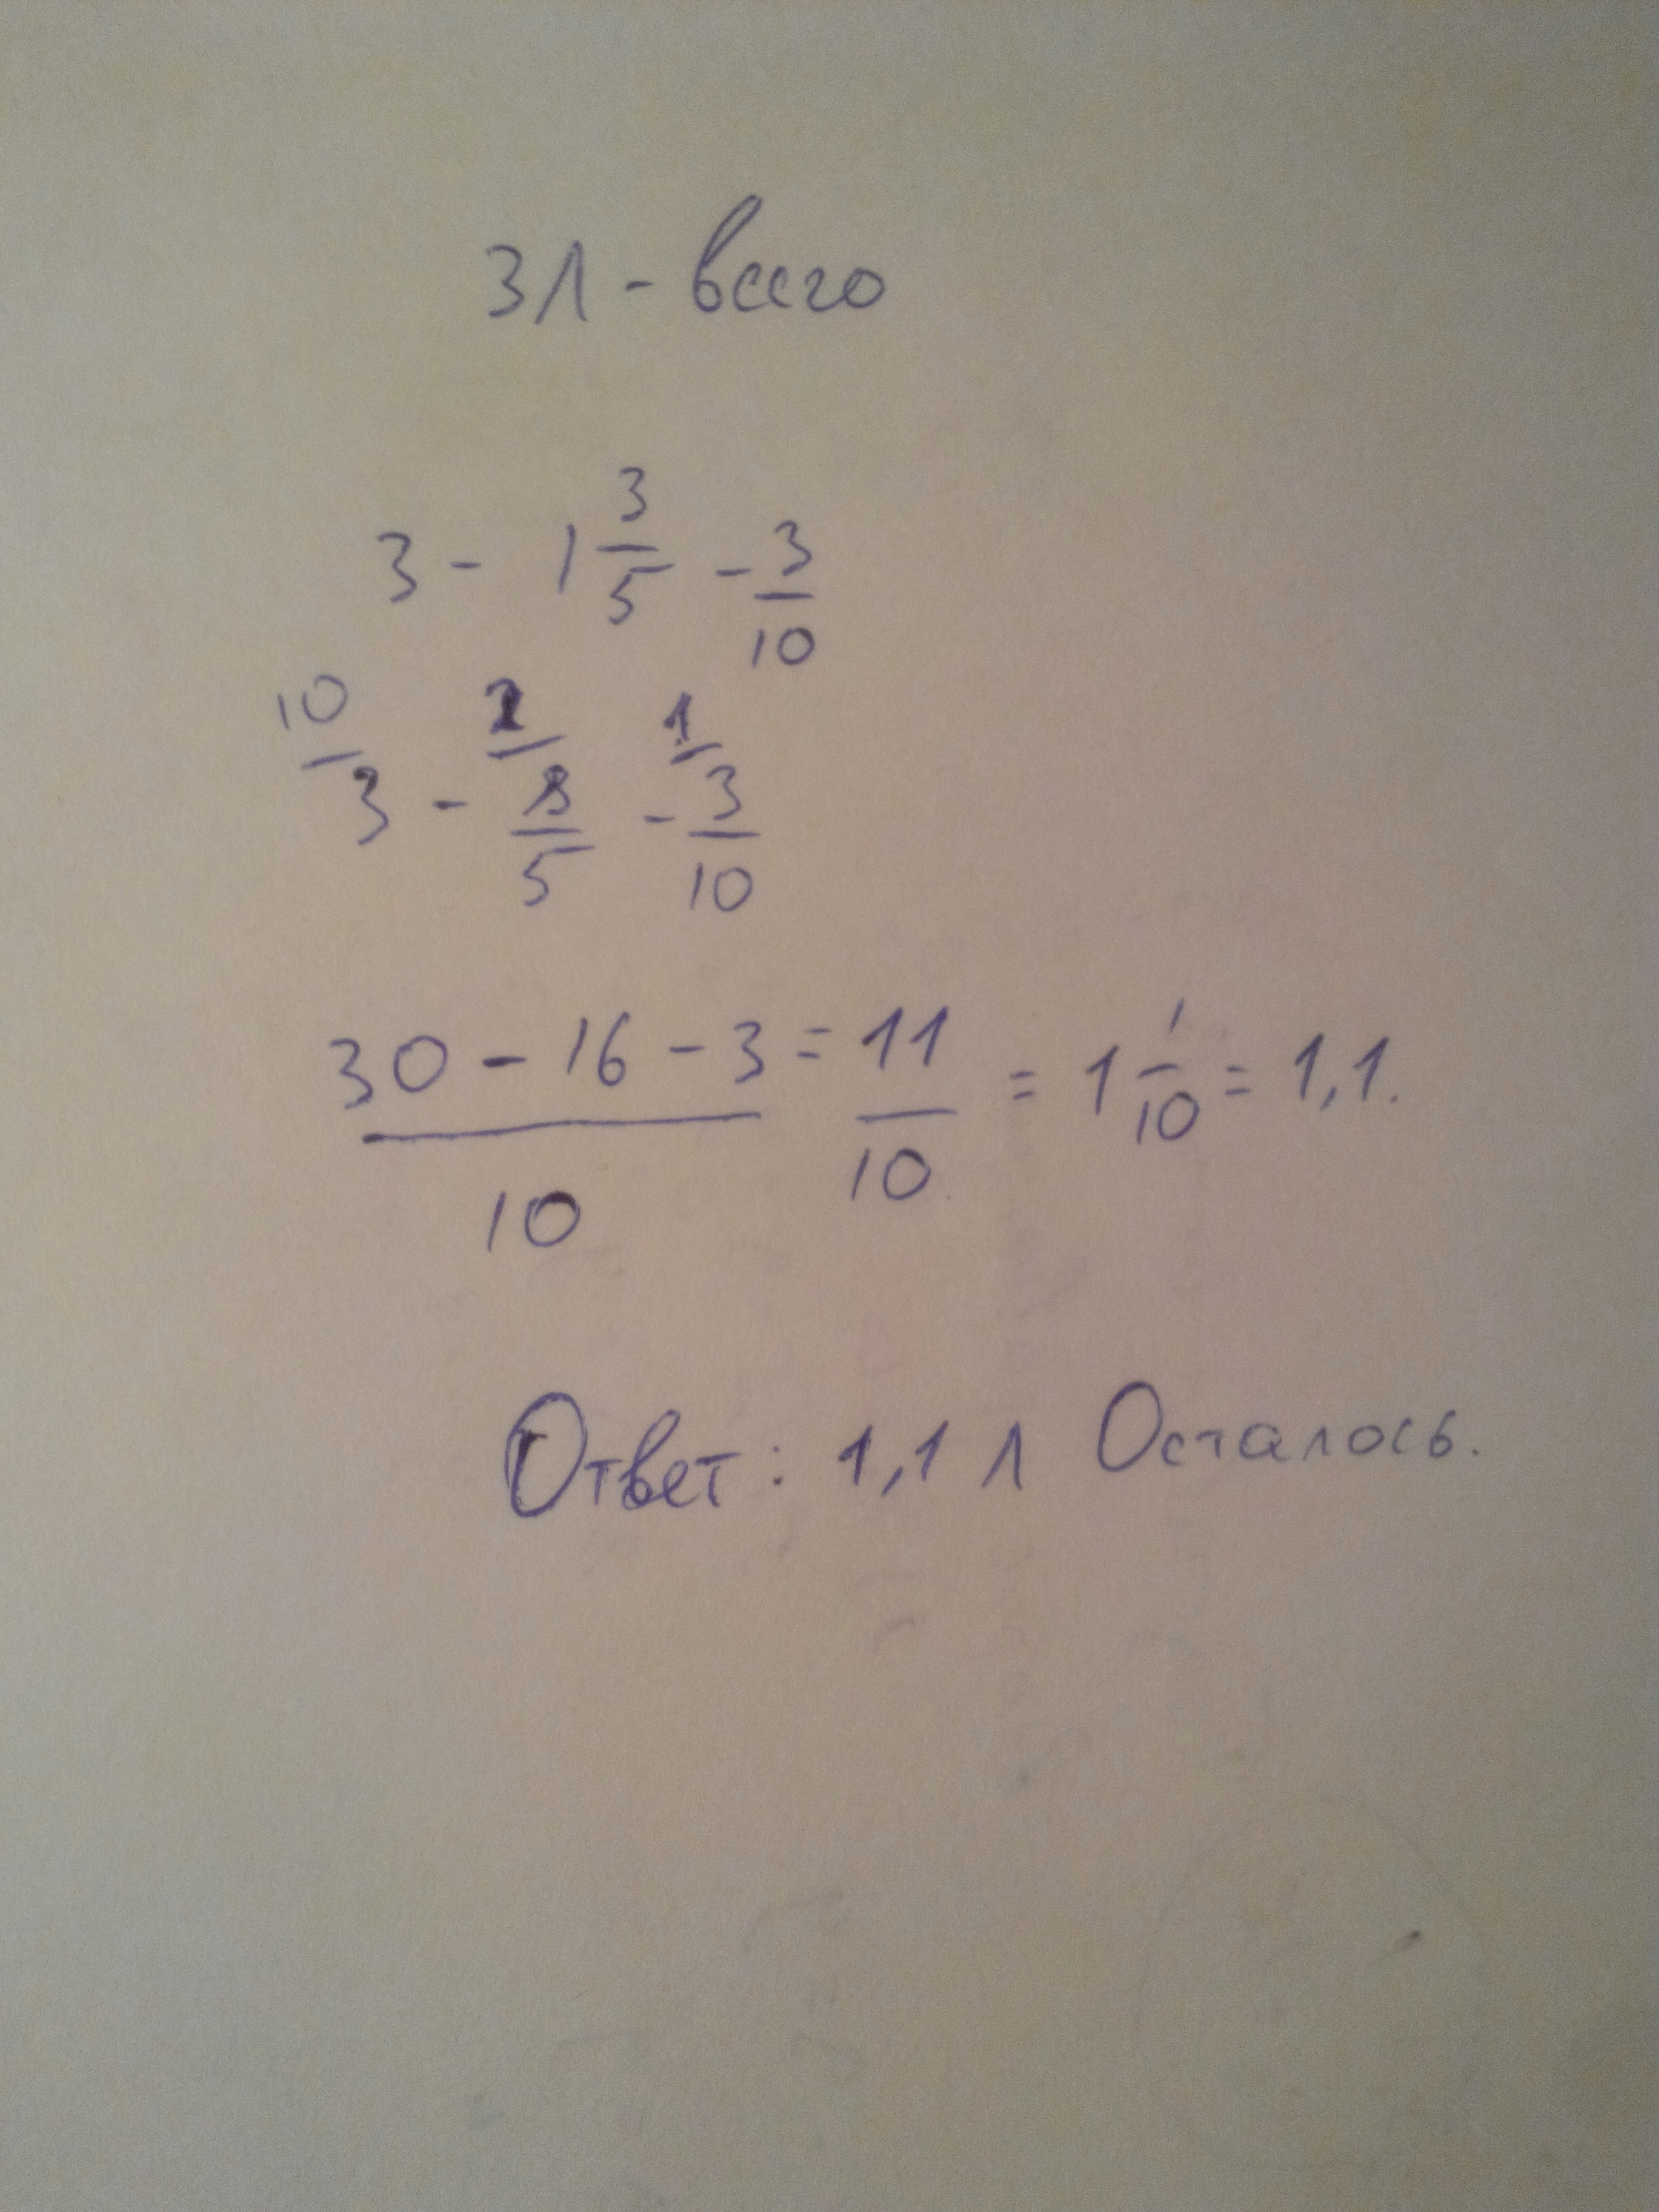 3л - всего
3 - 1 3/5 - 3/10
10/ 2/ 1/
3 - 8/5 - 3/10
30 - 16 - 3 / 10 = 11/10 = 1 1/10 = 1,1.
Ответ: 1,1 л Осталось.